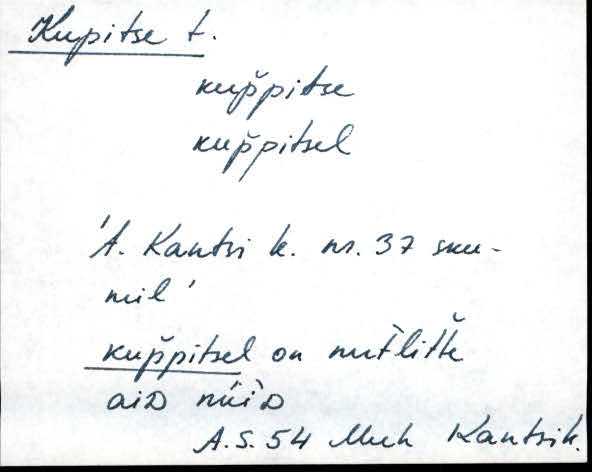 Kupitse t.
kup̆pitse
kup̆pitsel
'A. Kantsi k. nr. 37 suu-
mil'
kup̆pitsel on
aiD nüiD
A.S. 54 Muh Kantsik.